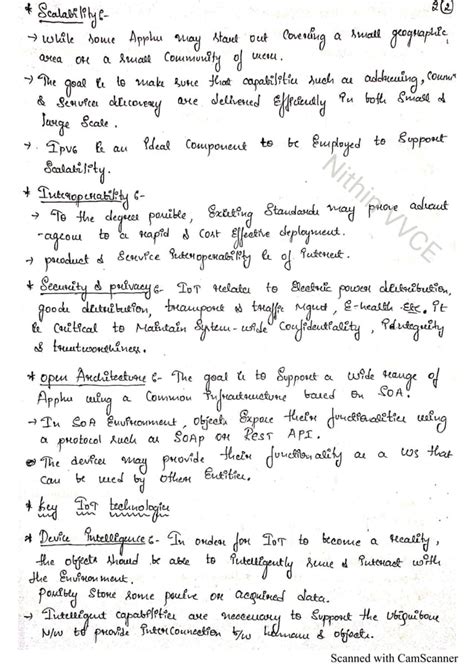 2(2)
* Scalability :-
→ While some Applns may start out covering a small geographic
area or a small community of users.
→ The goal is to make sure that capabilities such as addressing, Comm
& Service discovery are delivered Efficiently in both Small &
large Scale.
→ IPv6 is an Ideal Component to be Employed to Support
Scalability.
* Interoperability :-
→ To the degree possible, Existing Standards may prove advant
-ageous to a rapid & Cost Effective deployment.
→ product & Service Interoperability is of Interest.
* Security & privacy :- IoT relates to Electric power distribution,
goods distribution, transport & traffic Mgmt, E-health etc. It
is Critical to Maintain System-wide Confidentiality, Integrity
& trustworthiness.
* open Architecture :- The goal is to Support a Wide range of
Applns using a Common Infrastructure based on SOA.
→ In SOA Environment, objects Expose their functionalities using
a protocol such as SOAP or REST API.
The devices may provide their functionality as a WS that
can be used by other Entities.
* Key IoT technologies
* Device Intelligence :- In order for IoT to become a reality,
the objects should be able to Intelligently sense & Interact with
the Environment.
Possibly Store some passive or acquired data.
→ Intelligent capabilities are necessary to Support the Ubiquitous
N/w to provide InterConnection b/w humans & objects.
Nithin VVCE
Scanned with CamScanner